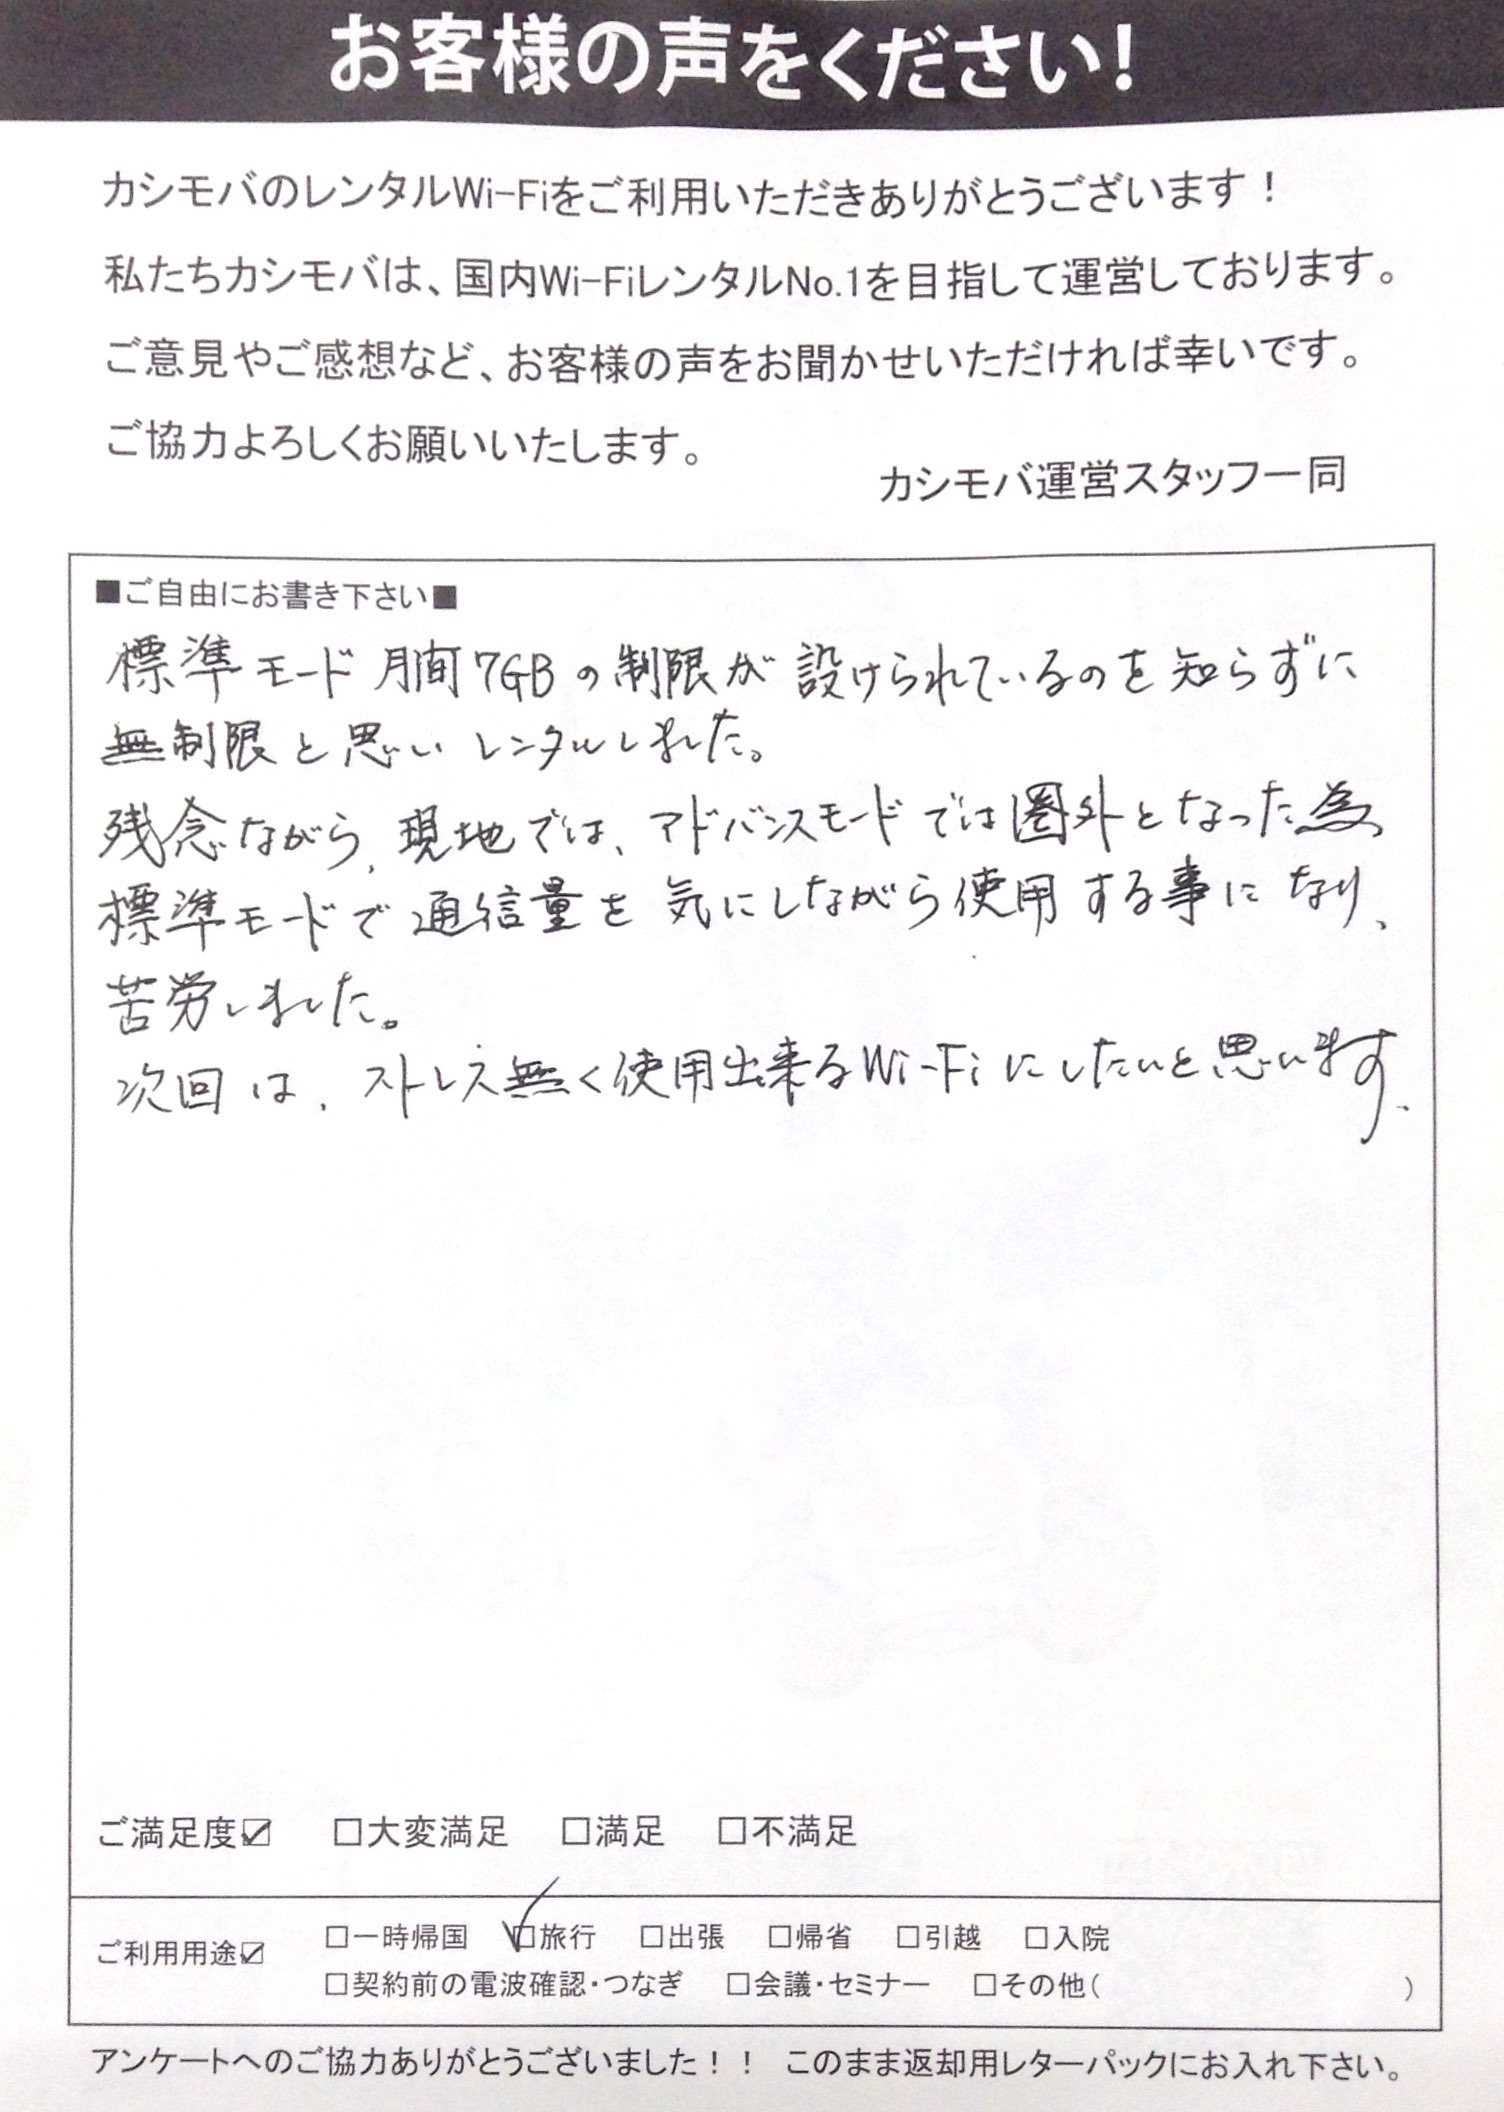 お客様の声をください!
カシモバのレンタルWi-Fiをご利用いただきありがとうございます!
私たちカシモバは、国内Wi-FiレンタルNo.1を目指して運営しております。
ご意見やご感想など、お客様の声をお聞かせいただければ幸いです。
ご協力よろしくお願いいたします。
カシモバ運営スタッフ一同
■ご自由にお書き下さい■
標準モード月間7GBの制限が設けられているのを知らずに
無制限と思いレンタルしました。
残念ながら、現地では、アドバンスモードでは圏外となった為、
標準モードで通信量を気にしながら使用する事になり、
苦労しました。
次回は、ストレス無く使用出来るWi-Fiにしたいと思います。
ご満足度☑ □大変満足 □満足 □不満足
ご利用用途☑ □一時帰国 ☑旅行 □出張 □帰省 □引越 □入院
□契約前の電波確認・つなぎ □会議・セミナー □その他( )
アンケートへのご協力ありがとうございました!! このまま返却用レターパックにお入れ下さい。